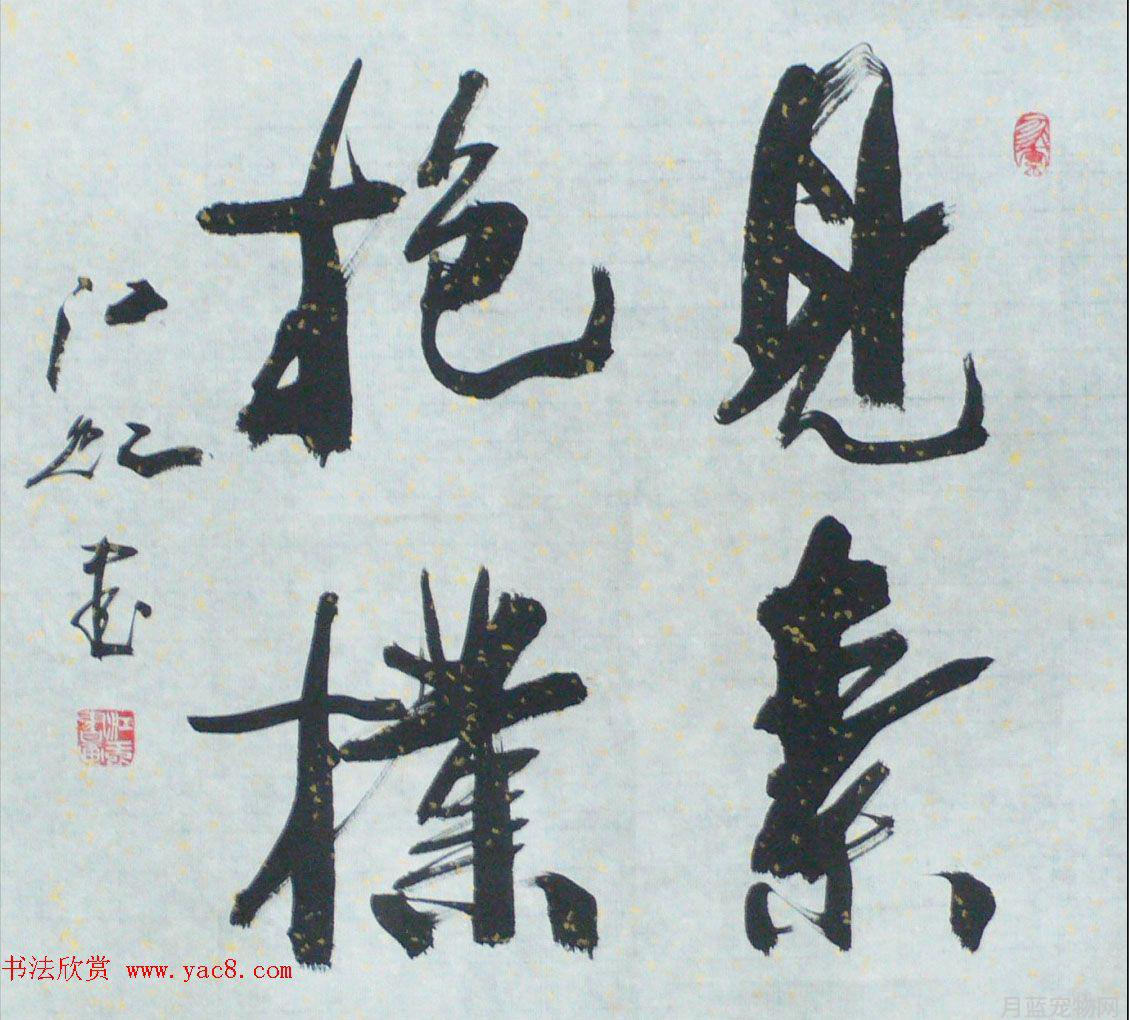 見素
抱樸
江虹書
书法欣赏 www.yac8.com
月蓝宠物网